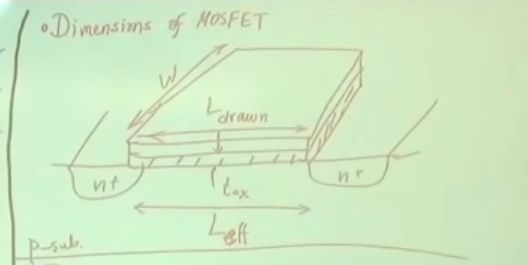 •Dimensions of MOSFET
W
Ldrawn
n+
tox
n+
Leff
p-sub.